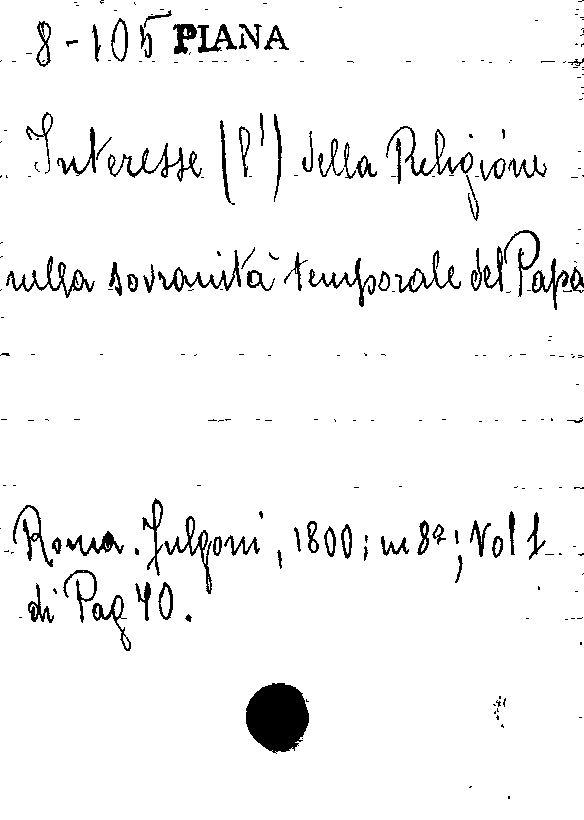 8-105 PIANA
Interesse (l') della Religione
nella sovranità temporale del Papa
Roma. Fulgoni, 1800; in 8º; Vol 1
di Pag 40.